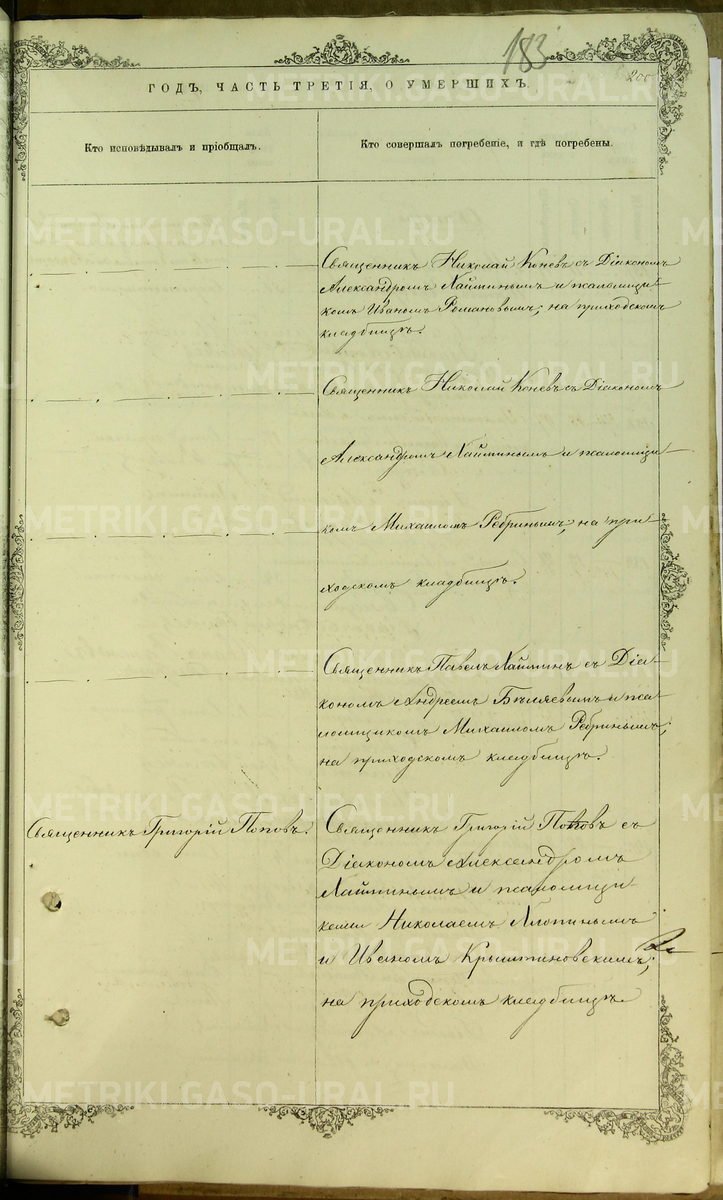 183
200
ГОДЪ, ЧАСТЬ ТРЕТІЯ, О УМЕРШИХЪ.
Кто исповѣдывалъ и пріобщалъ.
Кто совершалъ погребеніе, и гдѣ погребены.
Священникъ Николай Коневъ съ Діакономъ
Александромъ Хайминымъ и псаломщи-
комъ Иваномъ Романовымъ; на приходскомъ
кладбищѣ.
Священникъ Николай Коневъ съ Діакономъ
Александромъ Хайминымъ и псаломщи-
комъ Михаиломъ Ребринымъ, на при-
ходскомъ кладбищѣ.
Священникъ Павелъ Хайминъ съ Діа-
кономъ Андреемъ Бѣляевымъ и пса-
ломщикомъ Михаиломъ Ребринымъ;
на приходскомъ кладбищѣ.
Священникъ Григорій Поповъ.
Священникъ Григорій Поповъ съ
Діакономъ Александромъ
Хайминымъ и псаломщи-
ками Николаемъ Хлопинымъ
и Иваномъ Крыштиновскимъ;
на приходскомъ кладбищѣ.
METRIKI.GASO-URAL.RU